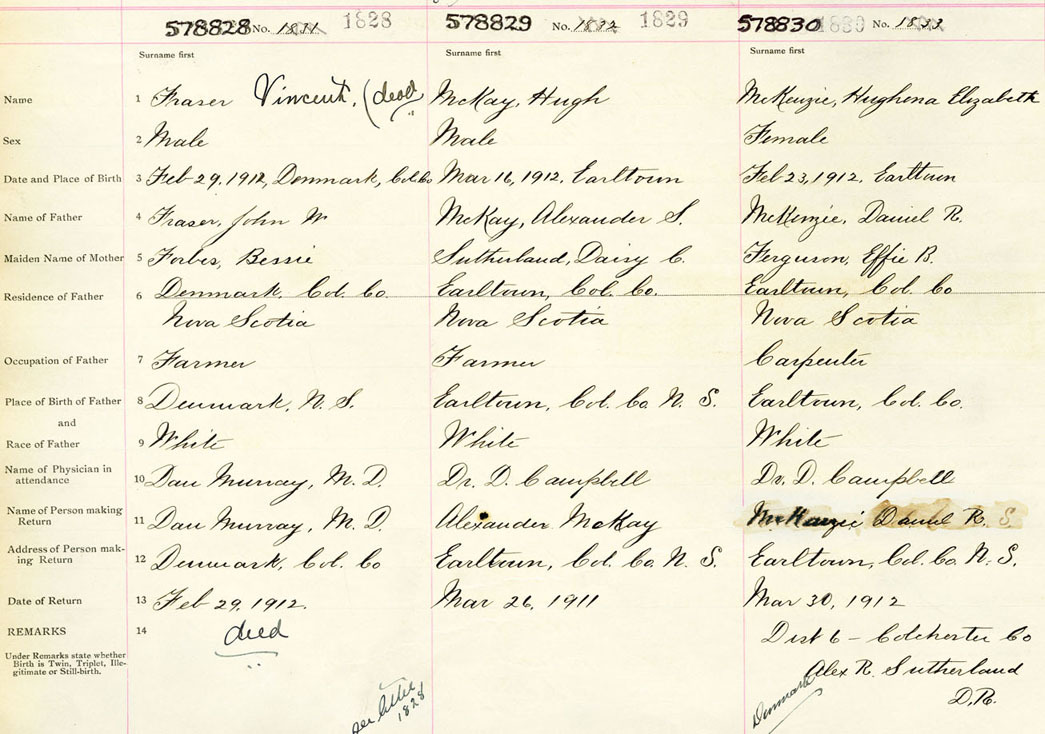 578828 No. 1831 1828 578829 No. 1832 1829 578830 1830 No. 1833
Surname first Surname first Surname first
Name 1 Fraser Vincent, (dead McKay, Hugh McKenzie, Hughena Elizabeth
Sex 2 Male Male Female
Date and Place of Birth 3 Feb 29, 1912, Denmark, Col. Co Mar 16, 1912, Earltown Feb 23, 1912, Earltown
Name of Father 4 Fraser, John W McKay, Alexander S. McKenzie, Daniel R.
Maiden Name of Mother 5 Forbes, Bessie Sutherland, Daisy C. Ferguson, Effie B.
Residence of Father 6 Denmark, Col. Co Earltown, Col. Co. Earltown, Col. Co
Nova Scotia Nova Scotia Nova Scotia
Occupation of Father 7 Farmer Farmer Carpenter
Place of Birth of Father 8 Denmark, N. S. Earltown, Col. Co. N. S. Earltown, Col. Co.
and
Race of Father 9 White White White
Name of Physician in
attendance 10 Dan Murray, M. D. Dr. D. Campbell Dr. D. Campbell
Name of Person making
Return 11 Dan Murray, M. D. Alexander McKay McKenzie Daniel R. S.
Address of Person mak-
ing Return 12 Denmark, Col. Co Earltown, Col. Co. N. S. Earltown, Col. Co. N. S.
Date of Return 13 Feb 29, 1912. Mar 26, 1911 Mar 30, 1912
REMARKS 14 dead Dist 6 - Colchester Co
Under Remarks state whether
Birth is Twin, Triplet, Ille-
gitimate or Still-birth.
Alex R. Sutherland
D.R.
see letter
1828
Denmark